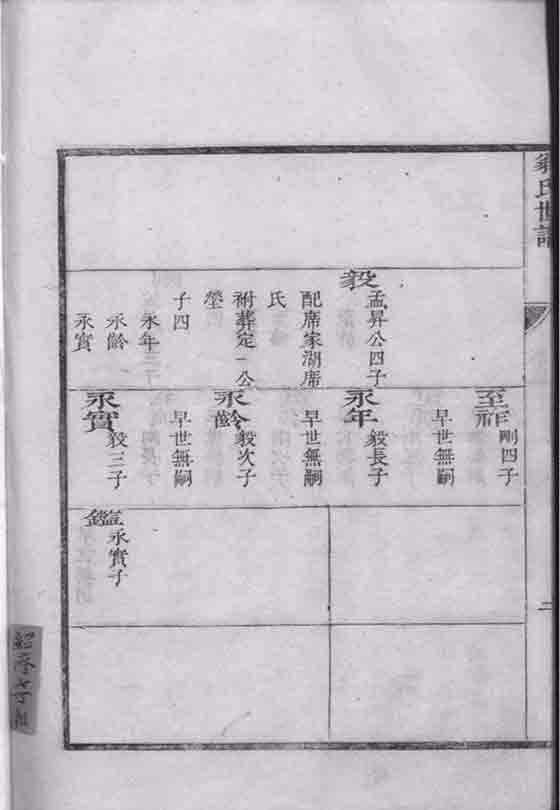 翁氏世譜
毅
孟昇公四子
配席家湖席
氏
祔葬定一公
塋
子四
永年
永齡
永實
至祚
剛四子
早世無嗣
永年
毅長子
早世無嗣
永齡
毅次子
早世無嗣
永實
毅三子
鑑
永實子